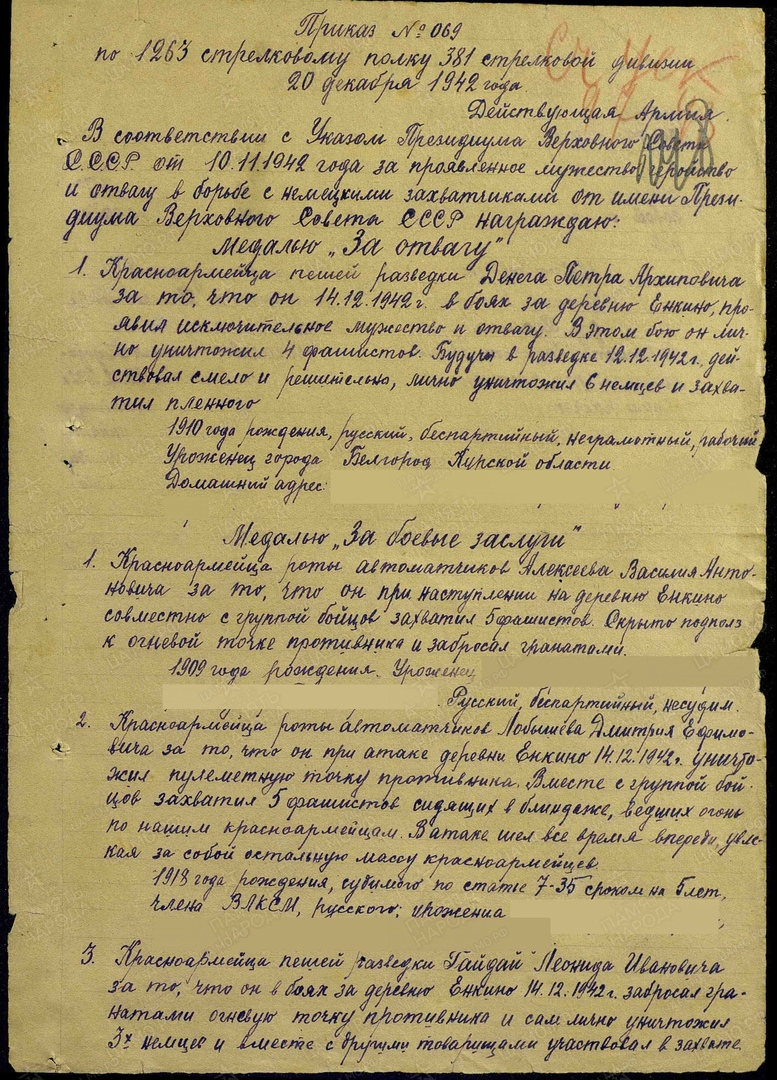 Приказ № 069
по 1263 стрелковому полку 381 стрелковой дивизии
20 декабря 1942 года
Действующая Армия.
В соответствии с Указом Президиума Верховного Совета
С.С.С.Р. от 10.11.1942 года за проявленное мужество героиство
и отвагу в борьбе с немецкими захватчиками от имени Прези-
диума Верховного Совета СССР награждаю:
Медалью „За отвагу"
1. Красноармейца пешей разведки Денега Петра Архиповича
за то, что он 14.12.1942 г. в боях за деревню Енкино, про-
явил исключительное мужество и отвагу. В этом бою он лич-
но уничтожил 4 фашистов. Будучи в разведке 12.12.1942г. дей-
ствовал смело и решительно, лично уничтожил 6 немцев и захва-
тил пленного
1910 года рождения, русский, беспартийный, неграмотный, рабочий
Уроженец города Белгород Курской области
Домашний адрес:
Медалью „За боевые заслуги"
1. Красноармейца роты автоматчиков Алексеева Василия Анто-
новича за то, что он при наступлении на деревню Енкино
совместно с группой бойцов захватил 5 фашистов. Скрыто подполз
к огневой точке противника и забросал гранатами.
1909 года рождения. Уроженец
Русский, беспартийный, несудим.
2. Красноармейца роты автоматчиков Лобышева Дмитрия Ефимо-
вича за то, что он при атаке деревни Енкино 14.12.1942г. уничто-
жил пулеметную точку противника. Вместе с группой бой-
цов захватил 5 фашистов сидящих в блиндаже, ведших огонь
по нашим красноармейцам. В атаке шел все время впереди, увле-
кая за собой остальную массу красноармейцев.
1918 года рождения, судимого по статье 7-35 сроком на 5 лет,
члена ВЛКСМ, русского; урожениа
3. Красноармейца пешей разведки Гайдай Леонида Ивановича
за то, что он в боях за деревню Енкино 14.12.1942г. забросал гра-
натами огневую точку противника и сам лично уничтожил
3х немцев и вместе с другими товарищами участвовал в захвате